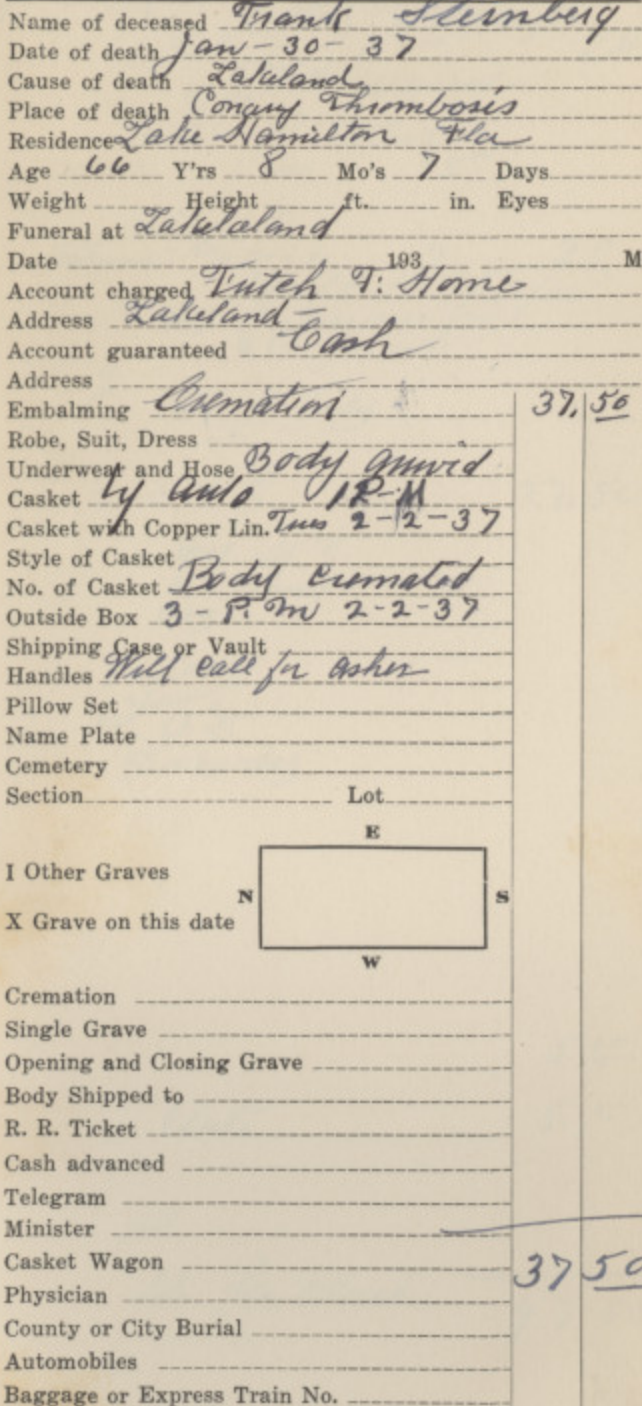 Name of deceased Frank Sternberg
Date of death Jan - 30 - 37
Cause of death Lakeland
Place of death Conary Thrombosis
Residence Lake Hamilton Fla
Age 66 Y'rs 8 Mo's 7 Days
Weight Height ft. in. Eyes
Funeral at Lakeland
Date 193 M
Account charged F. Home
Address Lakeland -
Account guaranteed Cash
Address
Embalming Cremation 37. 50
Robe, Suit, Dress
Underwear and Hose Body arrived
Casket by auto 1 P-M
Casket with Copper Lin. Tues 2-2-37
Style of Casket
No. of Casket Body cremated
Outside Box 3 - P.m 2-2-37
Shipping Case or Vault
Handles Will call for ashes
Pillow Set
Name Plate
Cemetery
Section Lot
E
I Other Graves
N S
X Grave on this date
W
Cremation
Single Grave
Opening and Closing Grave
Body Shipped to
R. R. Ticket
Cash advanced
Telegram
Minister
Casket Wagon 37 50
Physician
County or City Burial
Automobiles
Baggage or Express Train No.